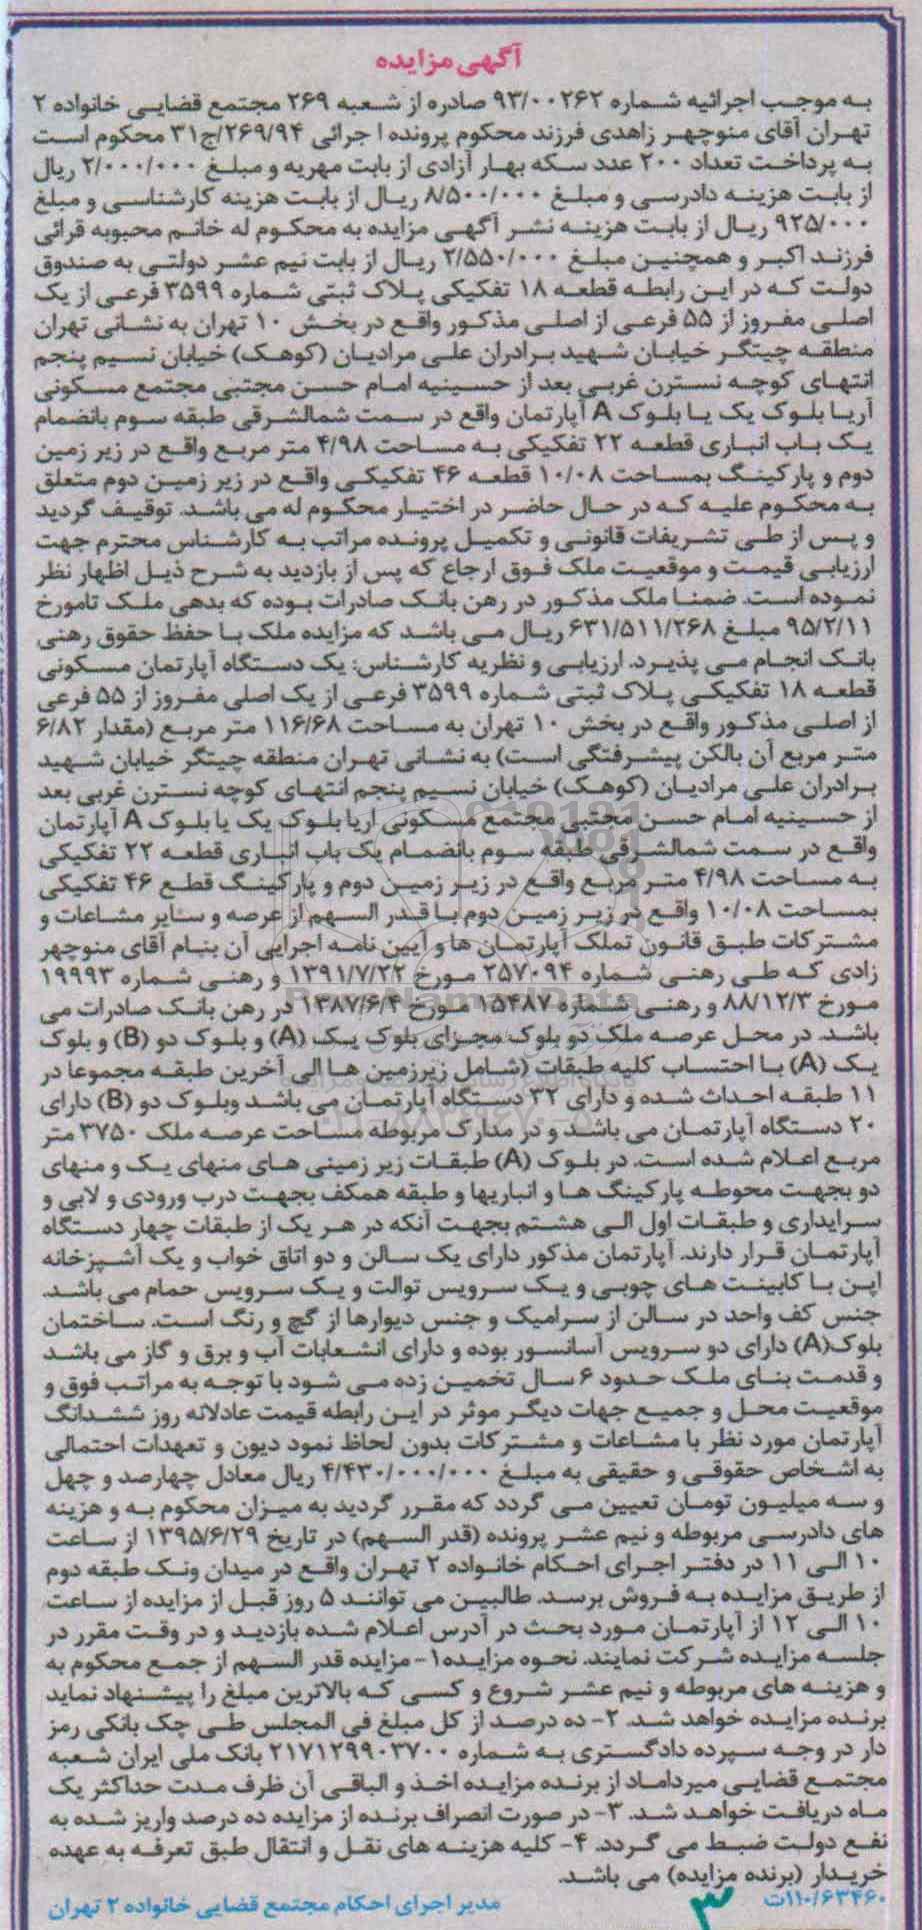 آگهی مزایده
به موجب اجرائیه شماره ۹۳/۰۰۲۶۲ صادره از شعبه ۲۶۹ مجتمع قضایی خانواده ۲
تهران آقای منوچهر زاهدی فرزند محکوم پرونده اجرائی ۲۶۹/۹۴/ج۳۱ محکوم است
به پرداخت تعداد ۲۰۰ عدد سکه بهار آزادی از بابت مهریه و مبلغ ۲/۰۰۰/۰۰۰ ریال
از بابت هزینه دادرسی و مبلغ ۸/۵۰۰/۰۰۰ ریال از بابت هزینه کارشناسی و مبلغ
۹۲۵/۰۰۰ ریال از بابت هزینه نشر آگهی مزایده به محکوم له خانم محبوبه قرائی
فرزند اکبر و همچنین مبلغ ۲/۵۵۰/۰۰۰ ریال از بابت نیم عشر دولتی به صندوق
دولت که در این رابطه قطعه ۱۸ تفکیکی پلاک ثبتی شماره ۳۵۹۹ فرعی از یک
اصلی مفروز از ۵۵ فرعی از اصلی مذکور واقع در بخش ۱۰ تهران به نشانی تهران
منطقه چیتگر خیابان شهید برادران علی مرادیان (کوهک) خیابان نسیم پنجم
انتهای کوچه نسترن غربی بعد از حسینیه امام حسن مجتبی مجتمع مسکونی
آریا بلوک یک یا بلوک A آپارتمان واقع در سمت شمالشرقی طبقه سوم بانضمام
یک باب انباری قطعه ۲۲ تفکیکی به مساحت ۴/۹۸ متر مربع واقع در زیر زمین
دوم و پارکینگ بمساحت ۱۰/۰۸ قطعه ۴۶ تفکیکی واقع در زیر زمین دوم متعلق
به محکوم علیه که در حال حاضر در اختیار محکوم له می باشد. توقیف گردید
و پس از طی تشریفات قانونی و تکمیل پرونده مراتب به کارشناس محترم جهت
ارزیابی قیمت و موقعیت ملک فوق ارجاع که پس از بازدید به شرح ذیل اظهار نظر
نموده است. ضمنا ملک مذکور در رهن بانک صادرات بوده که بدهی ملک تامورخ
۹۵/۲/۱۱ مبلغ ۶۳۱/۵۱۱/۲۶۸ ریال می باشد که مزایده ملک با حفظ حقوق رهنی
بانک انجام می پذیرد. ارزیابی و نظریه کارشناس: یک دستگاه آپارتمان مسکونی
قطعه ۱۸ تفکیکی پلاک ثبتی شماره ۳۵۹۹ فرعی از یک اصلی مفروز از ۵۵ فرعی
از اصلی مذکور واقع در بخش ۱۰ تهران به مساحت ۱۱۶/۶۸ متر مربع (مقدار ۶/۸۲
متر مربع آن بالکن پیشرفتگی است) به نشانی تهران منطقه چیتگر خیابان شهید
برادران علی مرادیان (کوهک) خیابان نسیم پنجم انتهای کوچه نسترن غربی بعد
از حسینیه امام حسن مجتبی مجتمع مسکونی اریا بلوک یک یا بلوک A آپارتمان
واقع در سمت شمالشرقی طبقه سوم بانضمام یک باب انباری قطعه ۲۲ تفکیکی
به مساحت ۴/۹۸ متر مربع واقع در زیر زمین دوم و پارکینگ قطع ۴۶ تفکیکی
بمساحت ۱۰/۰۸ واقع در زیر زمین دوم با قدر السهم از عرصه و سایر مشاعات و
مشترکات طبق قانون تملک آپارتمان ها و آیین نامه اجرایی آن بنام آقای منوچهر
زادی که طی رهنی شماره ۲۵۷۰۹۴ مورخ ۱۳۹۱/۷/۲۲ و رهنی شماره ۱۹۹۹۳
مورخ ۸۸/۱۲/۳ و رهنی شماره ۱۵۴۸۷ مورخ ۱۳۸۷/۶/۴ در رهن بانک صادرات می
باشد. در محل عرصه ملک دو بلوک مجزای بلوک یک (A) و بلوک دو (B) و بلوک
یک (A) با احتساب کلیه طبقات (شامل زیرزمین ها الی آخرین طبقه مجموعا در
۱۱ طبقه احداث شده و دارای ۳۲ دستگاه آپارتمان می باشد وبلوک دو (B) دارای
۲۰ دستگاه آپارتمان می باشد و در مدارک مربوطه مساحت عرصه ملک ۳۷۵۰ متر
مربع اعلام شده است. در بلوک (A) طبقات زیر زمینی های منهای یک و منهای
دو بجهت محوطه پارکینگ ها و انباریها و طبقه همکف بجهت درب ورودی و لابی و
سرایداری و طبقات اول الی هشتم بجهت آنکه در هر یک از طبقات چهار دستگاه
آپارتمان قرار دارند. آپارتمان مذکور دارای یک سالن و دو اتاق خواب و یک آشپزخانه
اپن با کابینت های چوبی و یک سرویس توالت و یک سرویس حمام می باشد.
جنس کف واحد در سالن از سرامیک و جنس دیوارها از گچ و رنگ است. ساختمان
بلوک(A) دارای دو سرویس آسانسور بوده و دارای انشعابات آب و برق و گاز می باشد
و قدمت بنای ملک حدود ۶ سال تخمین زده می شود با توجه به مراتب فوق و
موقعیت محل و جمیع جهات دیگر موثر در این رابطه قیمت عادلانه روز ششدانگ
آپارتمان مورد نظر با مشاعات و مشترکات بدون لحاظ نمود دیون و تعهدات احتمالی
به اشخاص حقوقی و حقیقی به مبلغ ۴/۴۳۰/۰۰۰/۰۰۰ ریال معادل چهارصد و چهل
و سه میلیون تومان تعیین می گردد که مقرر گردید به میزان محکوم به و هزینه
های دادرسی مربوطه و نیم عشر پرونده (قدر السهم) در تاریخ ۱۳۹۵/۶/۲۹ از ساعت
۱۰ الی ۱۱ در دفتر اجرای احکام خانواده ۲ تهران واقع در میدان ونک طبقه دوم
از طریق مزایده به فروش برسد. طالبین می توانند ۵ روز قبل از مزایده از ساعت
۱۰ الی ۱۲ از آپارتمان مورد بحث در آدرس اعلام شده بازدید و در وقت مقرر در
جلسه مزایده شرکت نمایند. نحوه مزایده ۱- مزایده قدر السهم از جمع محکوم به
و هزینه های مربوطه و نیم عشر شروع و کسی که بالاترین مبلغ را پیشنهاد نماید
برنده مزایده خواهد شد. ۲- ده درصد از کل مبلغ فی المجلس طی چک بانکی رمز
دار در وجه سپرده دادگستری به شماره ۲۱۷۱۲۹۹۰۳۷۰۰ بانک ملی ایران شعبه
مجتمع قضایی میرداماد از برنده مزایده اخذ و الباقی آن ظرف مدت حداکثر یک
ماه دریافت خواهد شد. ۳- در صورت انصراف برنده از مزایده ده درصد واریز شده به
نفع دولت ضبط می گردد. ۴- کلیه هزینه های نقل و انتقال طبق تعرفه به عهده
خریدار (برنده مزایده) می باشد.
۱۱۰/۶۳۴۶۰ت
۳
مدیر اجرای احکام مجتمع قضایی خانواده ۲ تهران